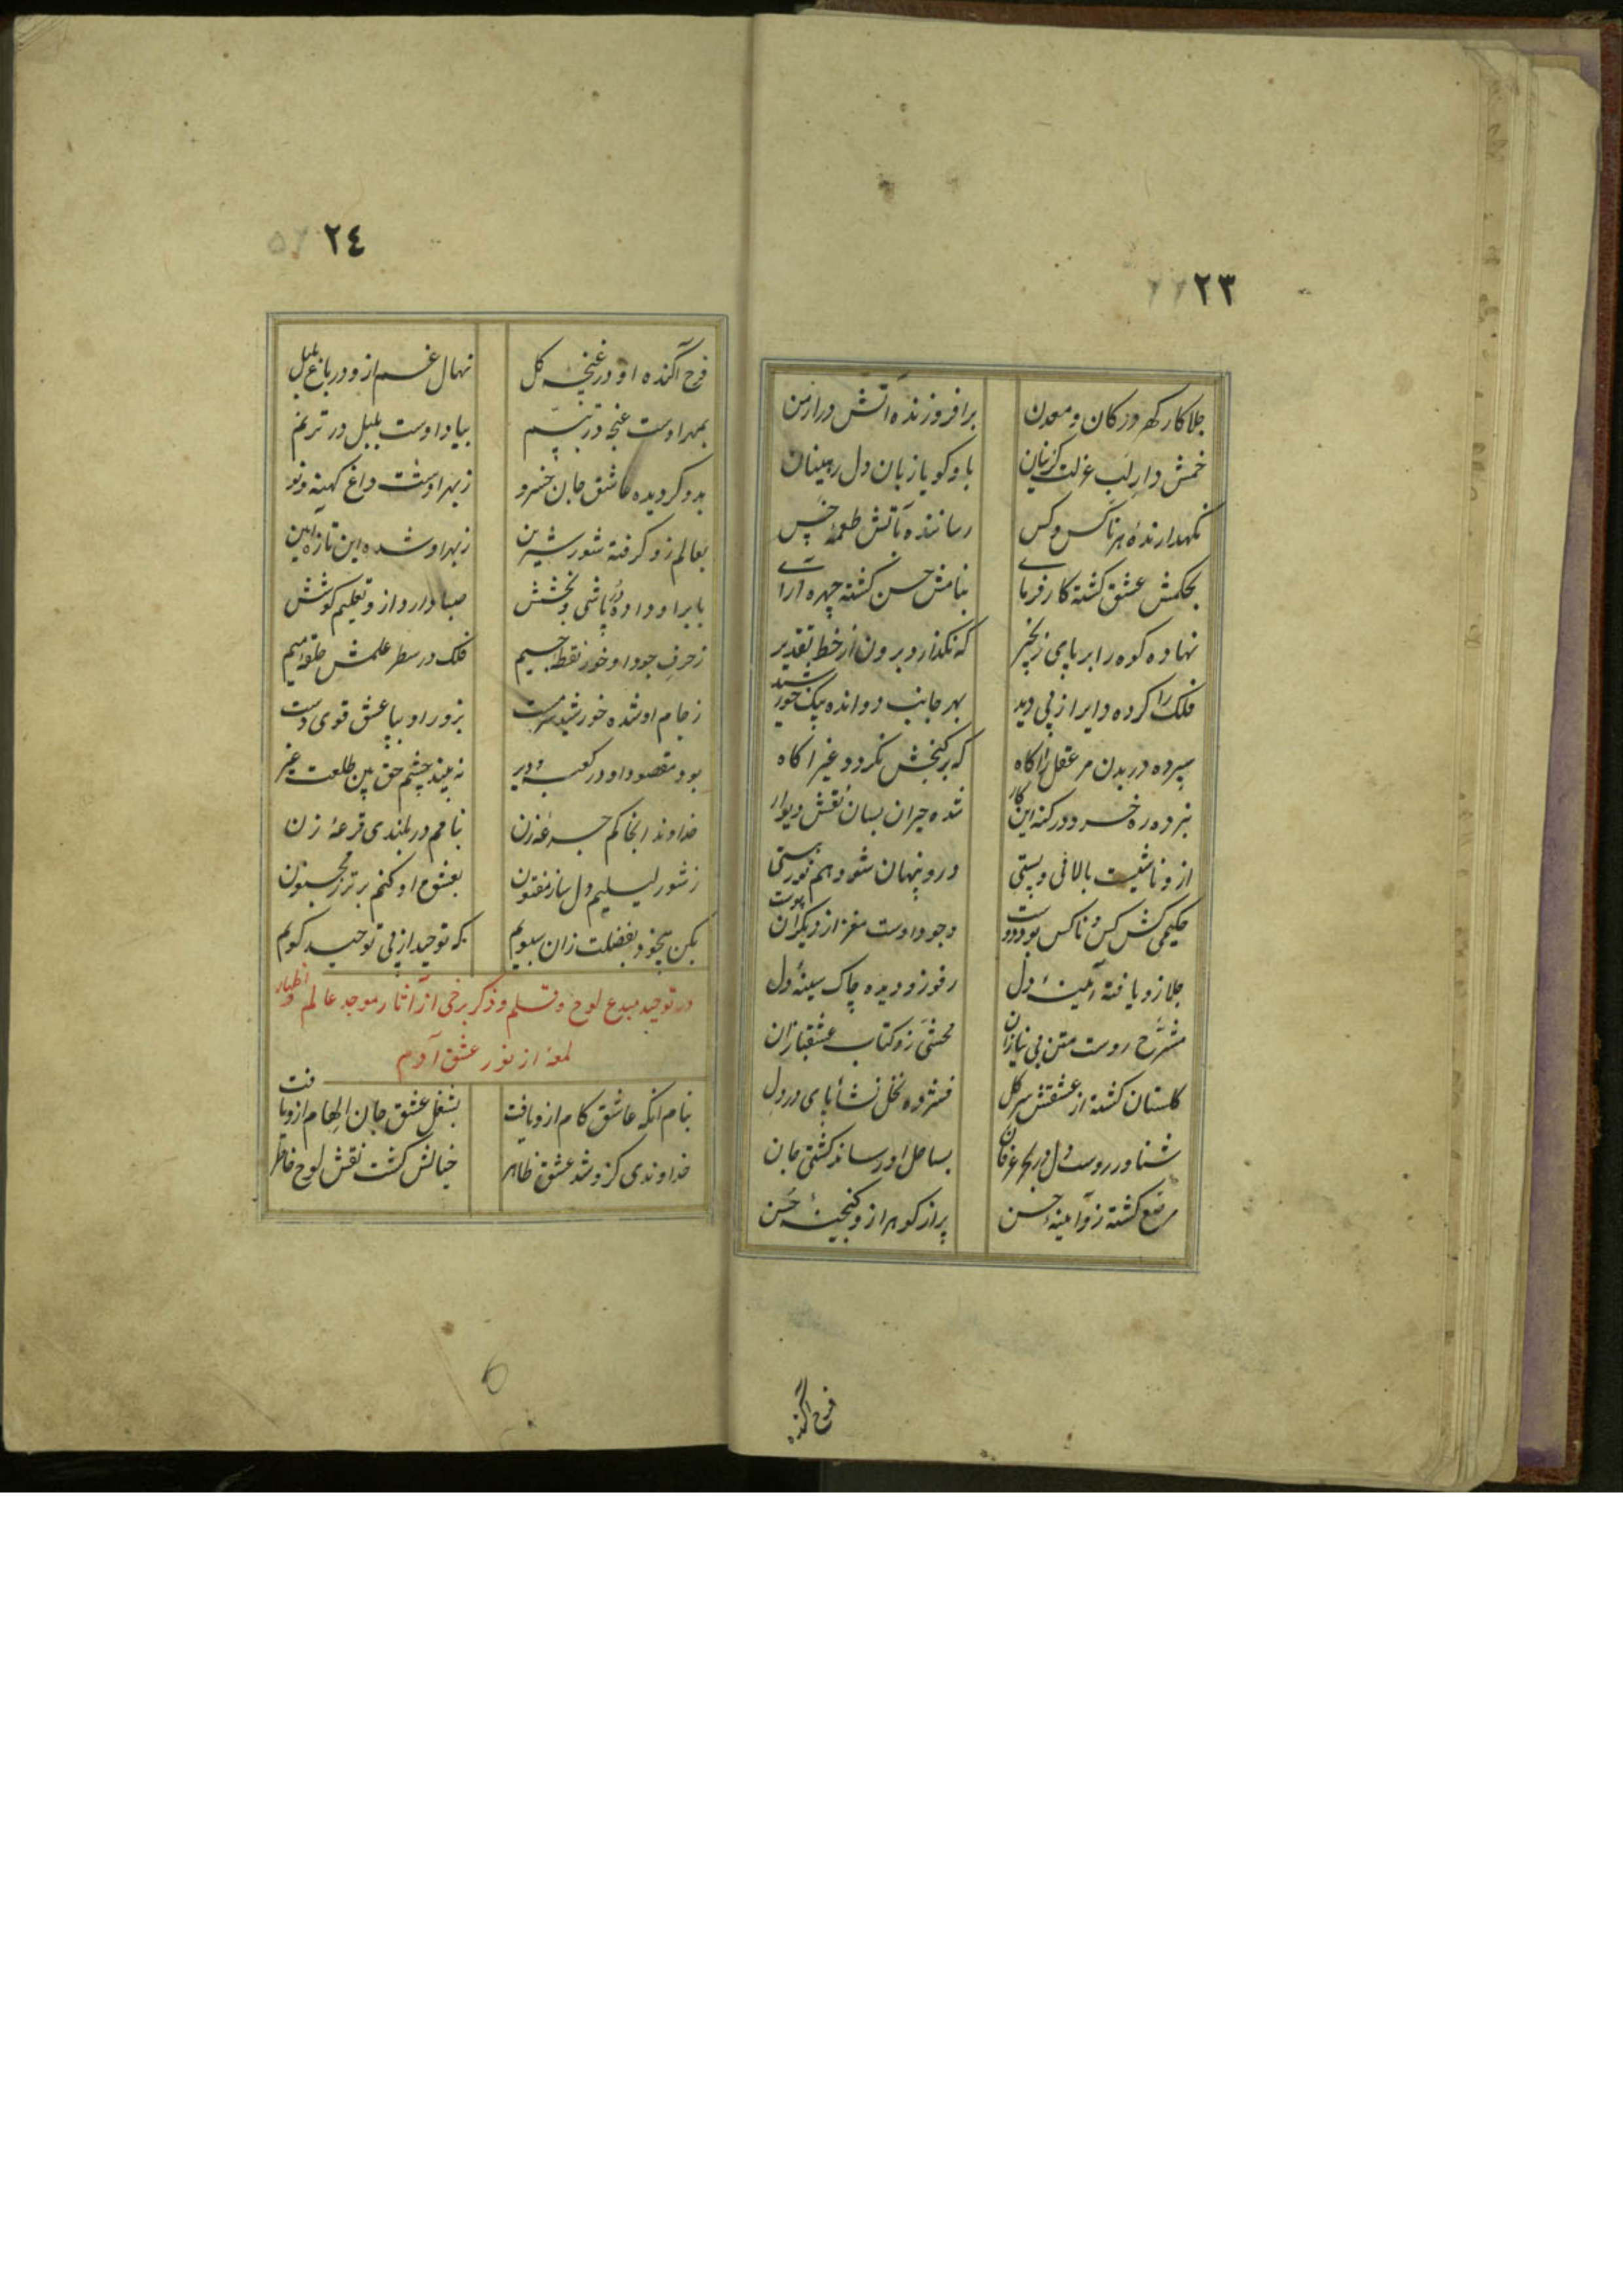 ٢٣
جلا کار کهر در کان و معدن برافروزنده آتش در ارمن
خمش دار لب عزلت گزینان باو کویا زبان دل ربینان
نکهدارندهٔ هر ناکس و کس رسانندهٔ بآتش طعمهٔ خس
بحکمش عشق کشته کارفرمای بنامش حسن کشته چهره آرای
نهاده کوه را بر پای زنجیر که نکذارد برون از خط تقدیر
فلک را کرده دایر از پی دید بهر جانب دوانده پیک خورشید
سپرده در بدن مر عقل را کاه که بر کنجش نکردد غیر اکاه
نبرده ره خرد در کنه این کار شده حیران بسان نقش دیوار
ازو ناشیست بالائی و پستی درو پنهان شود هم نور هستی
حکیمی کش کس و ناکس بود دوست وجود اوست مغز از دیکران پوست
جلا زو یافته آئینهٔ دل رفو زو دیده چاک سینهٔ دل
مشرح روست متن بی نیازان محشی زو کتاب عشقبازان
کلستان کشته از عشقش سر کل فشرده نخل نشأ پای در دل
شناور روست دل در بحر عرفان بساحل او رساند کشتی جان
مرصع کشته زو آینهٔ حسن پر از کوهر ازو کنجینهٔ حسن
فرح آکنده
٢٤
فرح آکنده او در غنچهٔ کل نهال غم ازو در باغ بلبل
بمهر اوست غنچه در تبسم بیاد اوست بلبل در ترنم
بدو کردیده عاشق جان خسرو ز بهر اوست داغ کهنه و نو
بعالم زو کرفته شور شیرین ز بهر او شده این تازه آیین
بابر او داده در پاشی و بخشش صبا دارد ازو تعلیم کوشش
ز حرف جود او خور نقطه جیم فلک در سطر علمش حلقهٔ میم
ز جام او شده خورشید سرمست بزور او بپا عشق قوی دست
بود مقصود او در کعبه و دیر نه بیند چشم حق بین طلعت غیر
خداوندا بخاکم جرعه زن بنامم در بلندی قرعهٔ زن
ز شور لیلیم دل ساز مفتون بعشق او کنم برتر ز مجنون
بکن بیخود بفضلت زان سبویم که توحید از پی توحید کویم
در توحید مبدع لوح و قلم و ذکر برخی از آثار موجد عالم و اظهار
لمعهٔ از نور عشق آدم
بنام آنکه عاشق کام ازو یافت بشغل عشق جان الهام ازو یافت
خداوندی کزو شد عشق ظاهر خیالش کشت نقش لوح خاطر